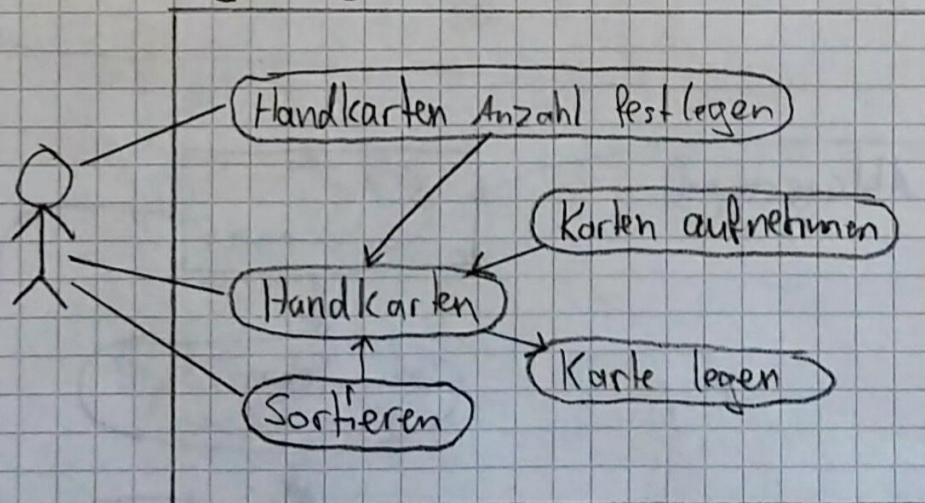 Handkarten Anzahl festlegen
Karten aufnehmen
Handkarten
Karte legen
Sortieren